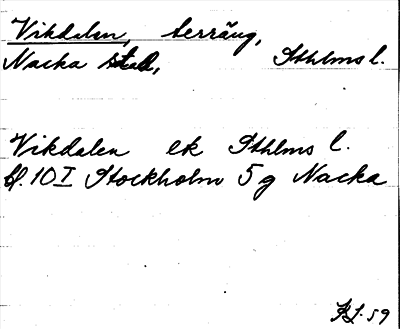 Vikdalen, terräng,
Nacka stad, Sthlms l.
Vikdalen ek Sthlms l.
bl. 10 I Stockholm 5g Nacka
59